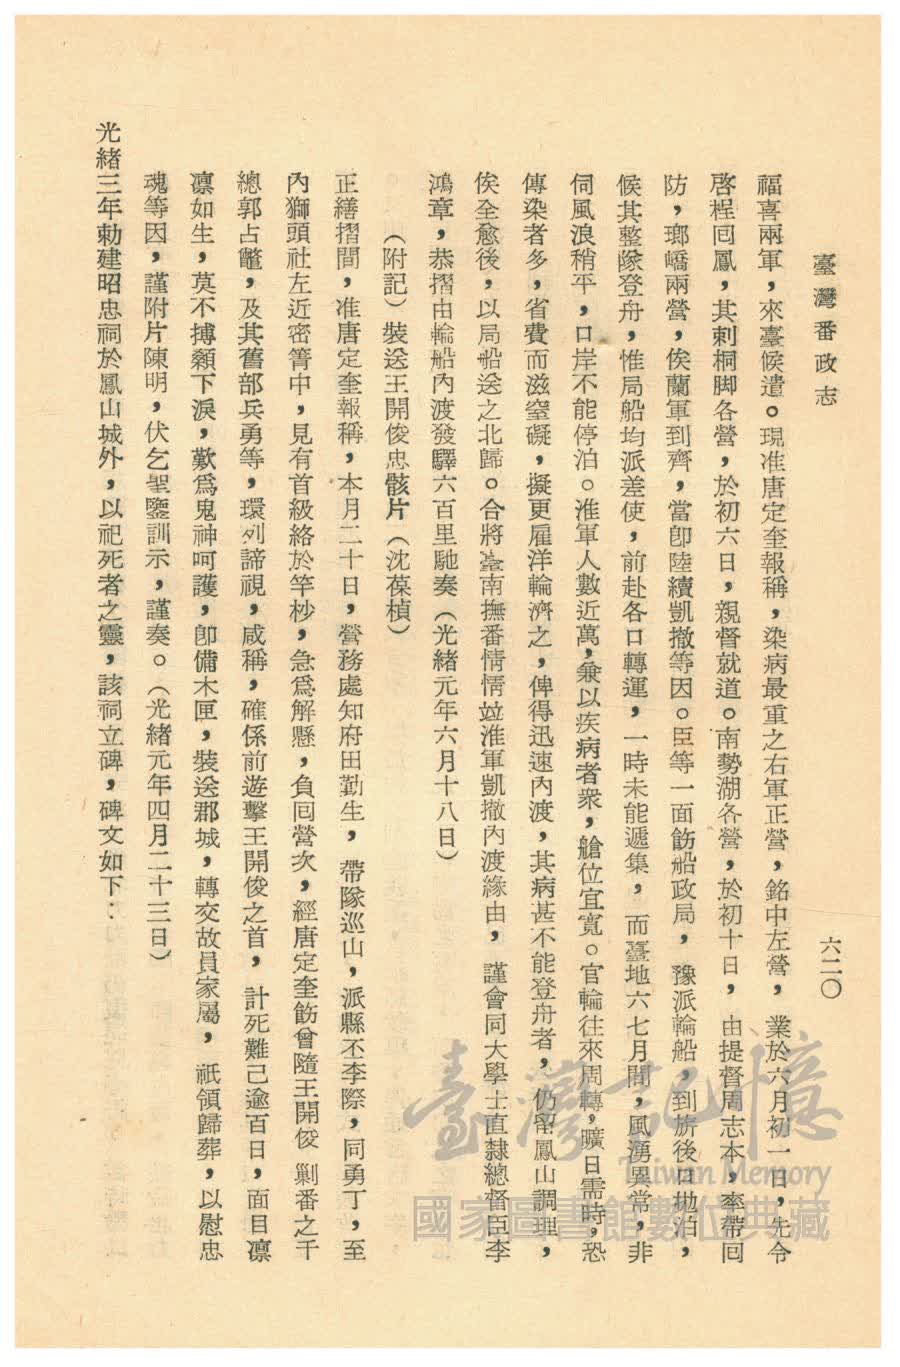 臺灣番政志
六二〇
福喜兩軍，來臺候遣。現准唐定奎報稱，染病最重之右軍正營，銘中左營，業於六月初一日，先令
啓程囘鳳，其刺桐脚各營，於初六日，親督就道。南勢湖各營，於初十日，由提督周志本，率帶囘
防，瑯嶠兩營，俟蘭軍到齊，當卽陸續凱撤等因。臣等一面飭船政局，豫派輪船，到旂後口拋泊，
候其整隊登舟，惟局船均派差使，前赴各口轉運，一時未能遞集，而臺地六七月間，風湧異常，非
伺風浪稍平，口岸不能停泊。淮軍人數近萬，兼以疾病者衆，艙位宜寬。官輪往來周轉，曠日需時，恐
傳染者多，省費而滋窒礙，擬更雇洋輪濟之，俾得迅速內渡，其病甚不能登舟者，仍留鳳山調理，
俟全愈後，以局船送之北歸。合將臺南撫番情情竝淮軍凱撤內渡緣由，謹會同大學士直隸總督臣李
鴻章，恭摺由輪船內渡發驛六百里馳奏（光緒元年六月十八日）
（附記）裝送王開俊忠骸片（沈葆楨）
正繕摺間，准唐定奎報稱，本月二十日，營務處知府田勤生，帶隊巡山，派縣丕李際，同勇丁，至
內獅頭社左近密箐中，見有首級絡於竿杪，急爲解懸，負囘營次，經唐定奎飭曾隨王開俊剿番之千
總郭占鼇，及其舊部兵勇等，環列諦視，咸稱，確係前遊擊王開俊之首，計死難己逾百日，面目凛
凛如生，莫不搏顙下淚，歎爲鬼神呵護，卽備木匣，裝送郡城，轉交故員家屬，祇領歸葬，以慰忠
魂等因，謹附片陳明，伏乞聖鑒訓示，謹奏。（光緒元年四月二十三日）
光緒三年勅建昭忠祠於鳳山城外，以祀死者之靈，該祠立碑，碑文如下：
臺灣記憶
Taiwan Memory
國家圖書館數位典藏